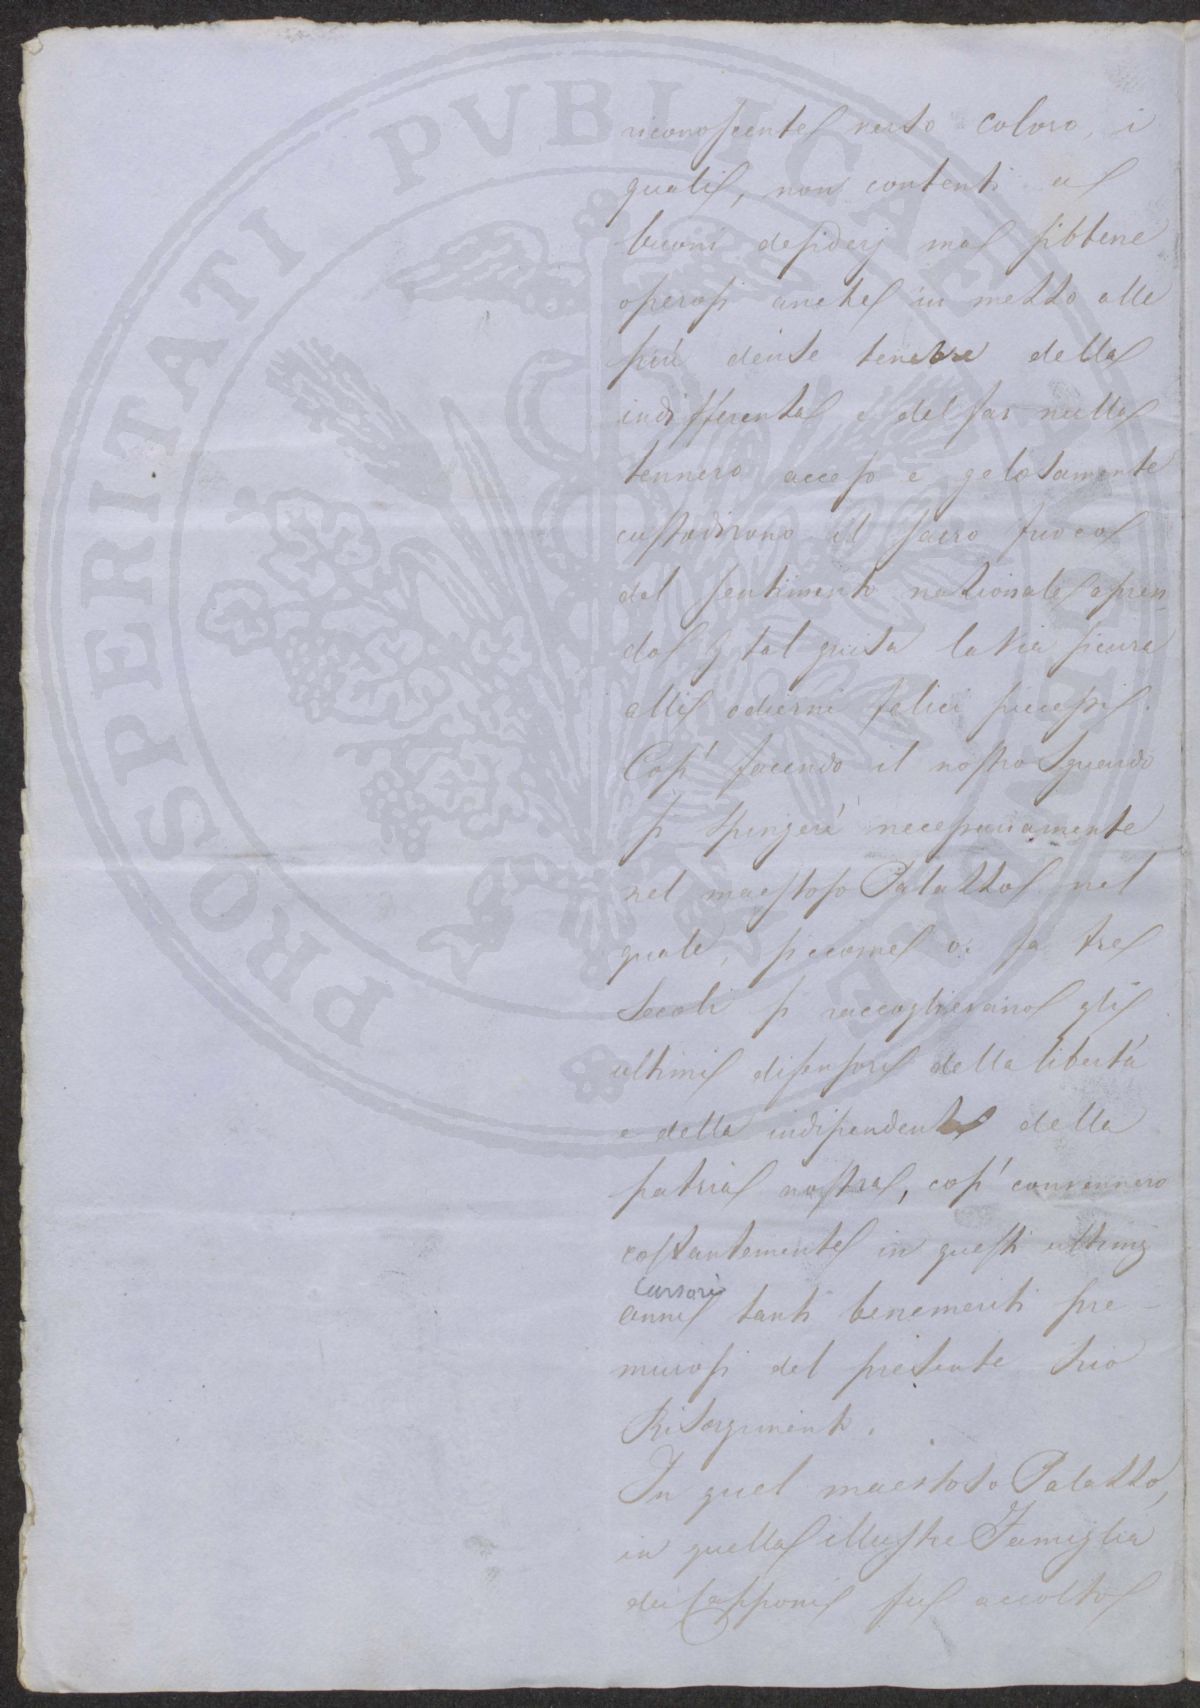 riconoscente verso coloro, i
quali, non contenti a
buoni desiderj ma sibbene
operosi anche in mezzo alle
più dense tenebre della
indifferenza e del far nulla
tennero acceso e gelosamente
custodirono il sacro fuoco
del sentimento nazionale apren-
do tal guisa la via sicura
alli odierni felici successi.
Così facendo il nostro sguardo
si spingerà necessariamente
nel maestoso Palazzo nel
quale, siccome or fa tre
Secoli si raccoglievano gli
ultimi difensori della libertà
e della indipendenza della
patria nostra, così convennero
costantemente in questi ultimi
Cursori
anni tanti benemeriti pre-
murosi del presente suo
Risorgimento.
In quel maestoso Palazzo,
in quella illustre Famiglia
dei Capponi fu accolto
PROSPERITATI PVBLICAE